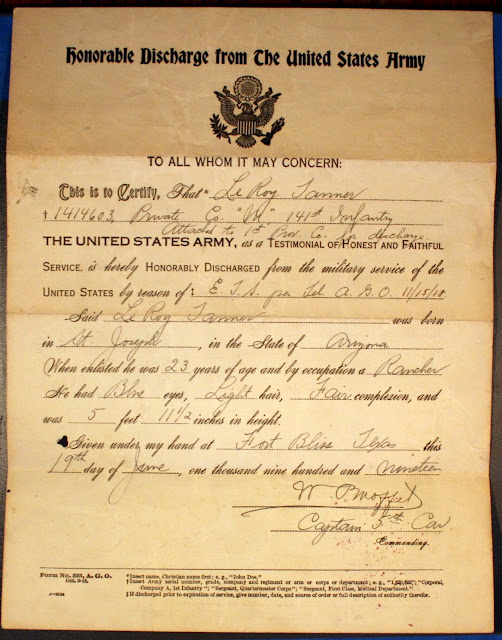 Honorable Discharge from The United States Army
TO ALL WHOM IT MAY CONCERN:
This is to Certify, That* LeRoy Tanner
† 1414603, Private Co. "M." 141st Infantry
Attached to 1st Prov. Co. for discharge.
THE UNITED STATES ARMY, as a TESTIMONIAL OF HONEST AND FAITHFUL
SERVICE, is hereby HONORABLY DISCHARGED from the military service of the
UNITED STATES by reason of‡ E. T. S. per Tel. A. G. O. 11/15/18.
Said LeRoy Tanner was born
in St Joseph, in the State of Arizona
When enlisted he was 23 years of age and by occupation a Rancher
He had Blue eyes, Light hair, Fair complexion, and
was 5 feet 11 1/2 inches in height.
Given under my hand at Fort Bliss Texas this
19th day of June, one thousand nine hundred and nineteen
Captain Cav
Commanding.
Form No. 525, A. G. O.
*Insert name, Christian name first; e. g., "John Doe."
†Insert Army serial number, grade, company and regiment or arm or corps or department; e. g., "Corporal,
Company A, 1st Infantry"; "Sergeant, Quartermaster Corps"; "Sergeant, First Class, Medical Department."
‡If discharged prior to expiration of service, give number, date, and source of order or full description of authority therefor.